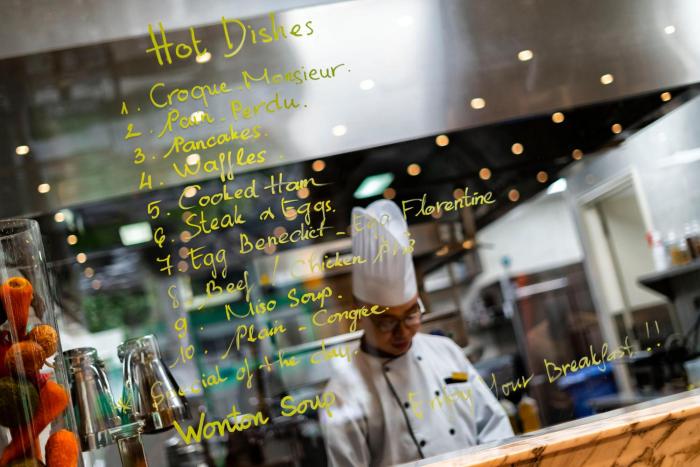 Hot Dishes
1. Croque-Monsieur.
2. Pain-Perdu.
3. Pancakes.
4. Waffles.
5. Cooked Ham
6. Steak & Eggs.
7. Egg Benedict - Egg Florentine
8. Beef / Chicken
9. Miso Soup.
10. Plain - Congee.
* Special of the day.
Wonton Soup
Enjoy Your Breakfast !!